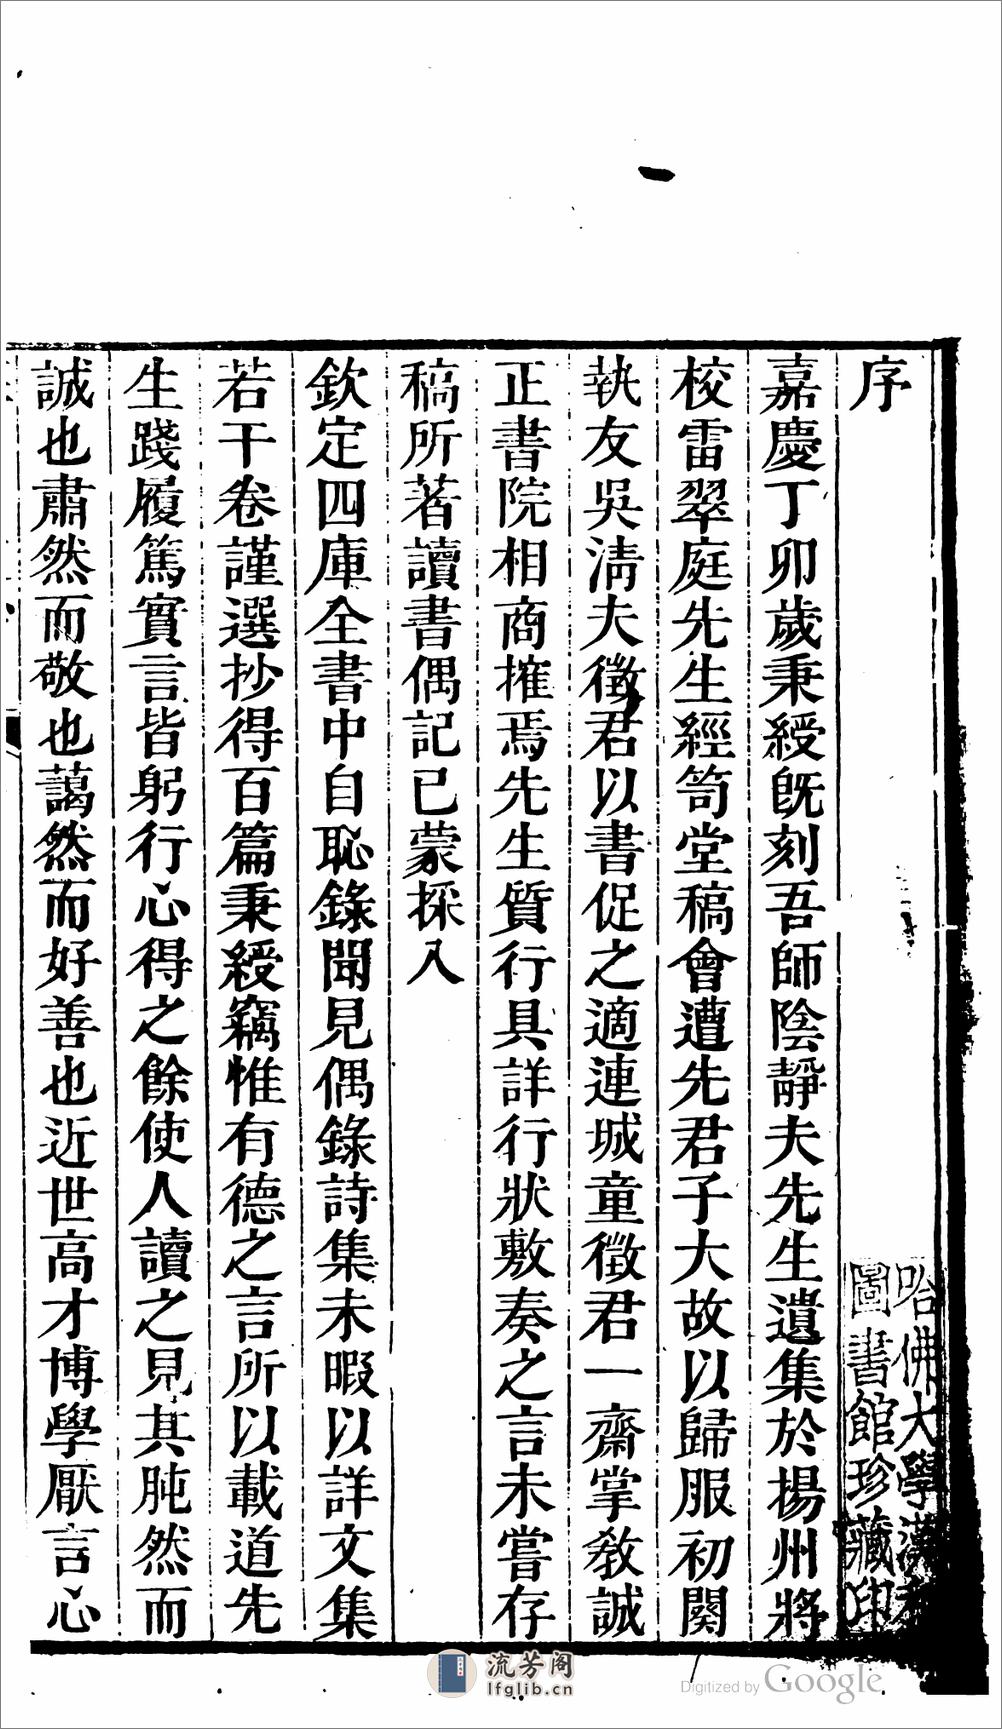 序
嘉慶丁卯歲秉綬旣刻吾師陰靜夫先生遺集於揚州將
校雷翠庭先生經笥堂稿會遭先君子大故以歸服初闋
執友吳清夫徵君以書促之適連城童徵君一齋掌敎誠
正書院相商搉焉先生質行具詳行狀敷奏之言未嘗存
稿所著讀書偶記已蒙採入
欽定四庫全書中自恥錄聞見偶錄詩集未暇以詳文集
若干卷謹選抄得百篇秉綬竊惟有德之言所以載道先
生踐履篤實言皆躬行心得之餘使人讀之見其肫然而
誠也肅然而敬也藹然而好善也近世高才博學厭言心
哈佛大學漢和
圖書館珍藏印
流芳阁
lfglib.cn
Digitized by Google